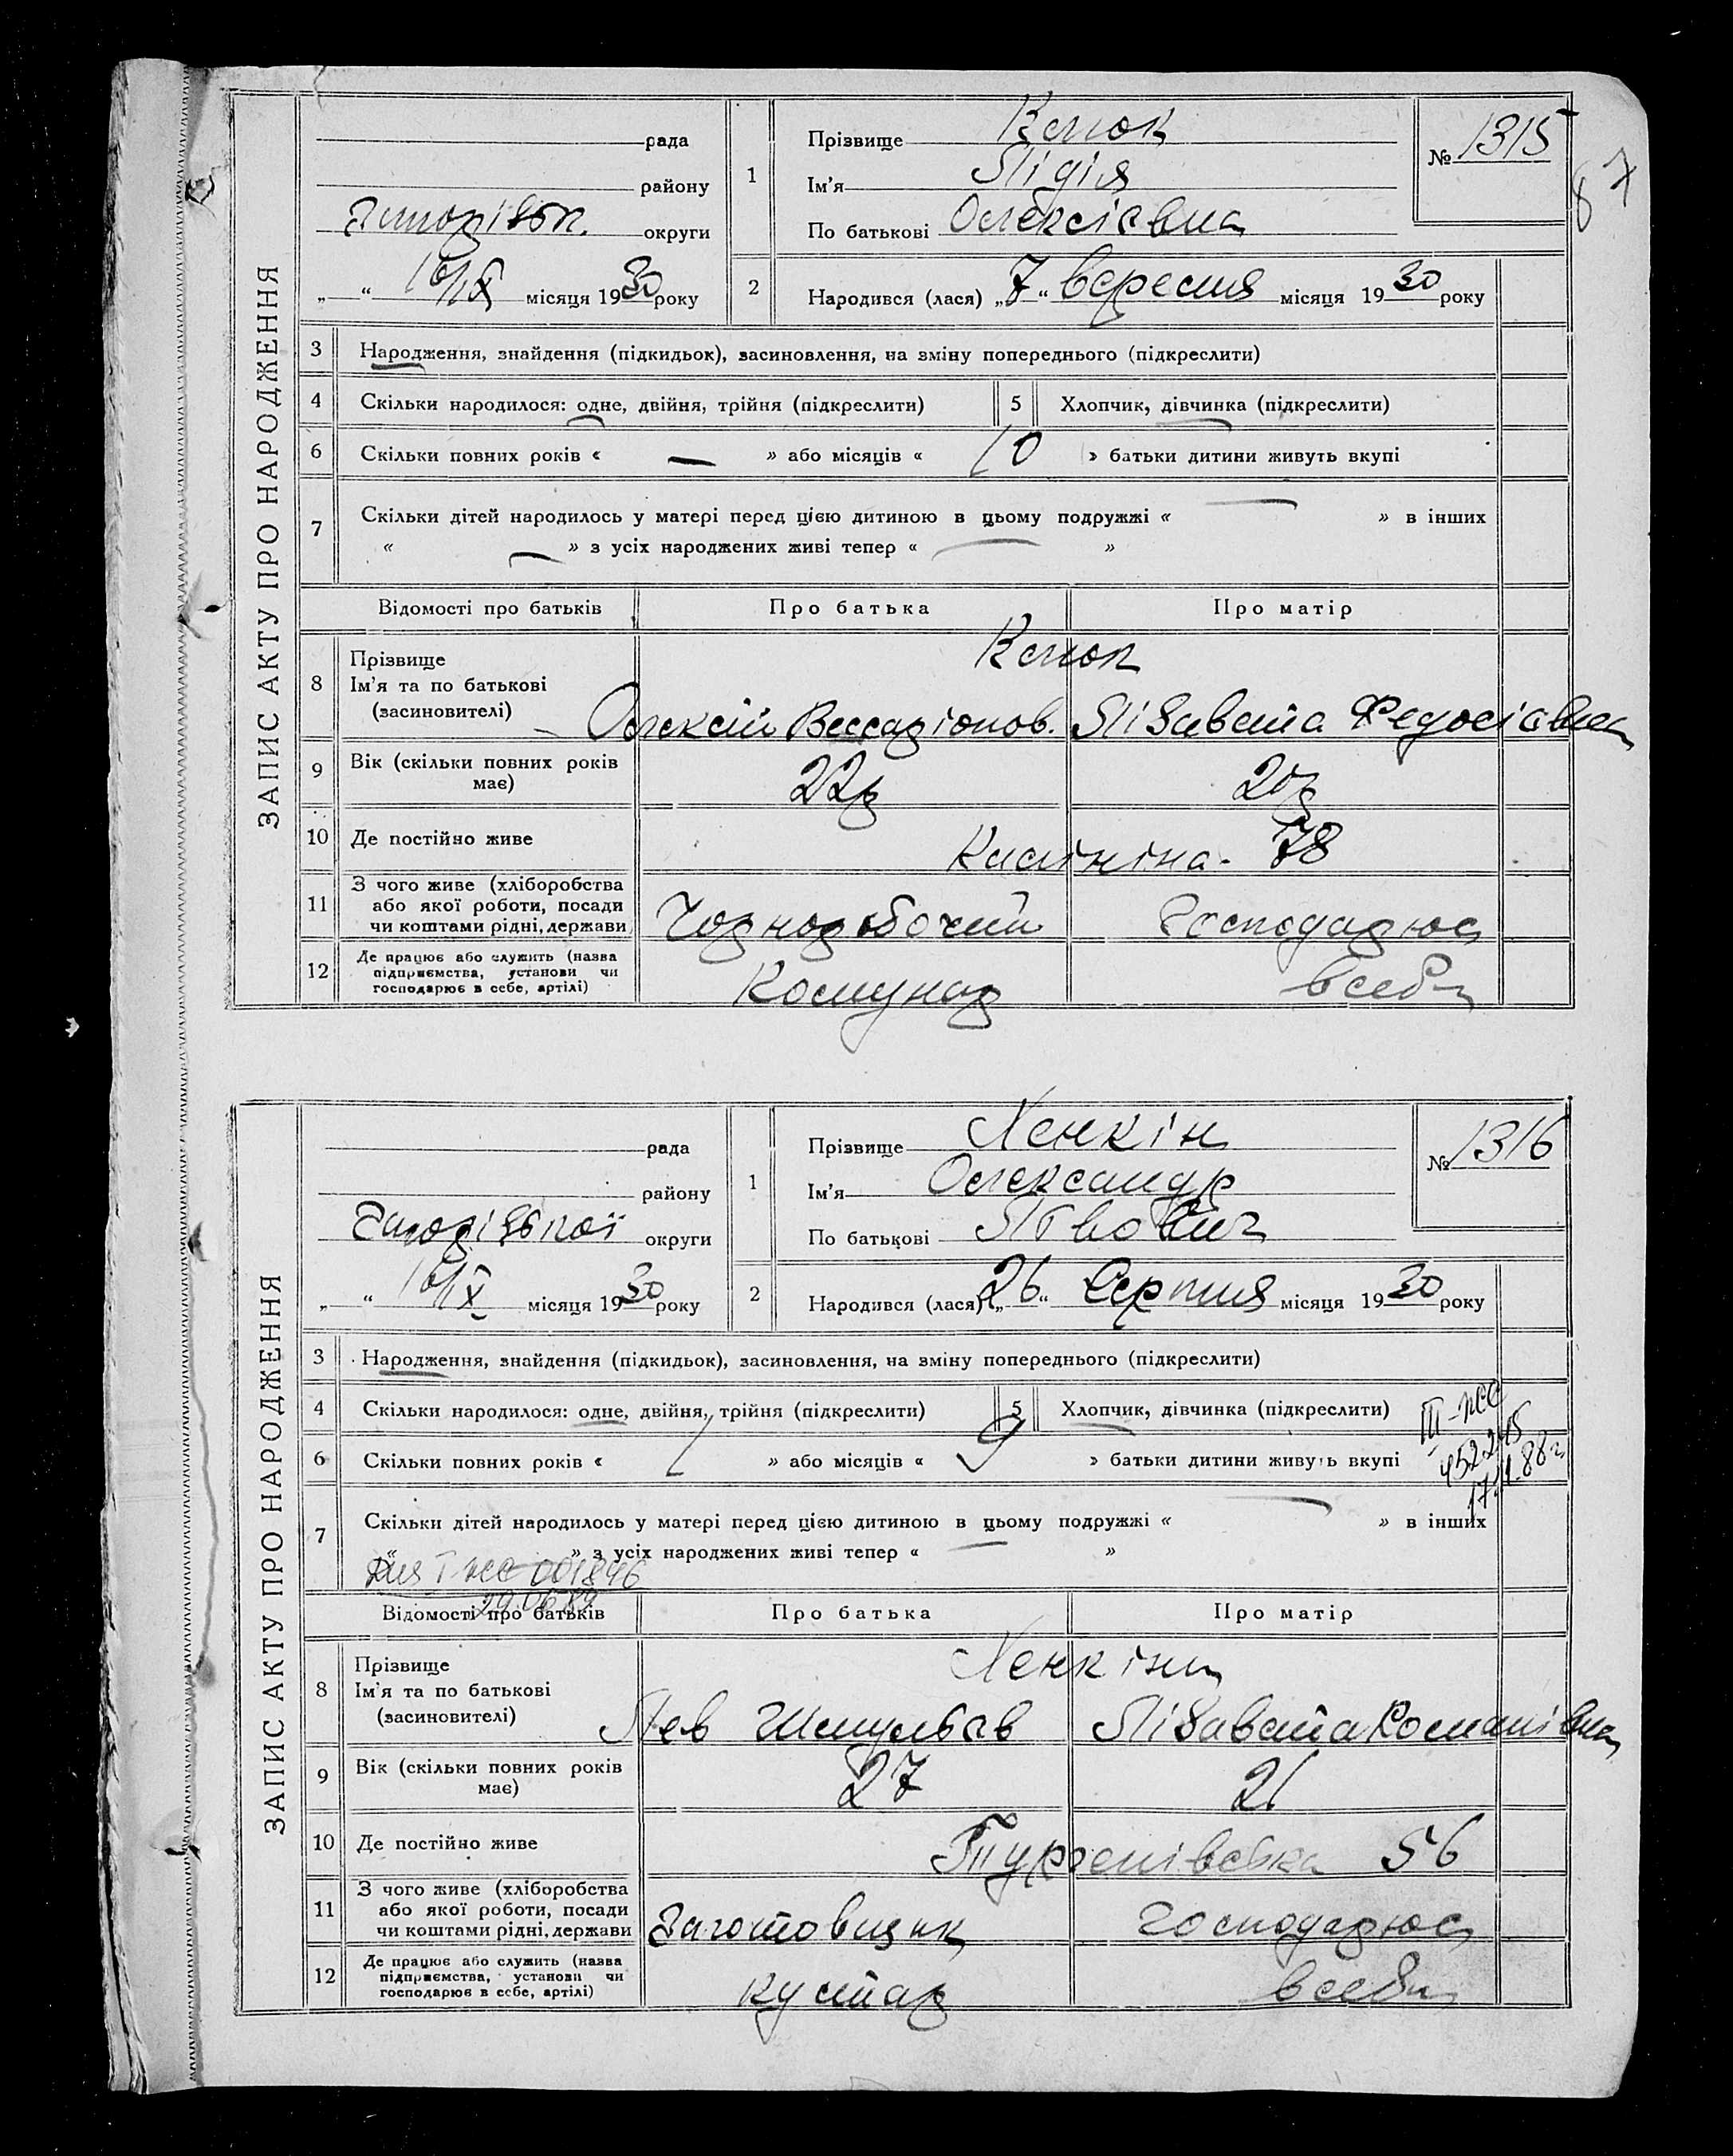 87
ЗАПИС АКТУ ПРО НАРОДЖЕННЯ
рада
району
округи
16/IX місяця 1930 року
1
Прізвище
Ім'я Лідія
По батькові Олексієвна
№ 1315
2
Народився (лася) „7“ вересня місяця 1930 року
3 Народження, знайдення (підкидьок), засиновлення, на зміну попереднього (підкреслити)
4 Скільки народилося: одне, двійня, трійня (підкреслити) 5 Хлопчик, дівчинка (підкреслити)
6 Скільки повних років « — » або місяців « 10 » батьки дитини живуть вкупі
7 Скільки дітей народилось у матері перед цією дитиною в цьому подружжі « — » в інших
« — » з усіх народжених живі тепер « — »
Відомості про батьків Про батька Про матір
8 Прізвище
Ім'я та по батькові
(засиновителі)
Олексій Вессаріонов. Лізавета Федосієвна
9 Вік (скільки повних років
має)
22р 20р
10 Де постійно живе
Калініна - 78
11 З чого живе (хліборобства
або якої роботи, посади
чи коштами рідні, держави
Чорноробочий Господарює
12 Де працює або служить (назва
підприємства, установи чи
господарює в себе, артілі)
Комунар в себе
ЗАПИС АКТУ ПРО НАРОДЖЕННЯ
рада
району
Запорізької округи
16/IX місяця 1930 року
1
Прізвище Хенкін
Ім'я Олександр
По батькові Львович
№ 1316
2
Народився (лася) „26“ Серпня місяця 1930 року
3 Народження, знайдення (підкидьок), засиновлення, на зміну попереднього (підкреслити)
4 Скільки народилося: одне, двійня, трійня (підкреслити) 5 Хлопчик, дівчинка (підкреслити)
6 Скільки повних років « 1 » або місяців « 9 » батьки дитини живуть вкупі
7 Скільки дітей народилось у матері перед цією дитиною в цьому подружжі « — » в інших
« » з усіх народжених живі тепер « — »
001846
29.06.89
Відомості про батьків Про батька Про матір
8 Прізвище
Ім'я та по батькові
(засиновителі)
Хенкіни
Лев Шмульєв Лізавета Романівна
9 Вік (скільки повних років
має)
27 21
10 Де постійно живе
Тургенівська 56
11 З чого живе (хліборобства
або якої роботи, посади
чи коштами рідні, держави
Заготовщик господарює
12 Де працює або служить (назва
підприємства, установи чи
господарює в себе, артілі)
кустар в себе